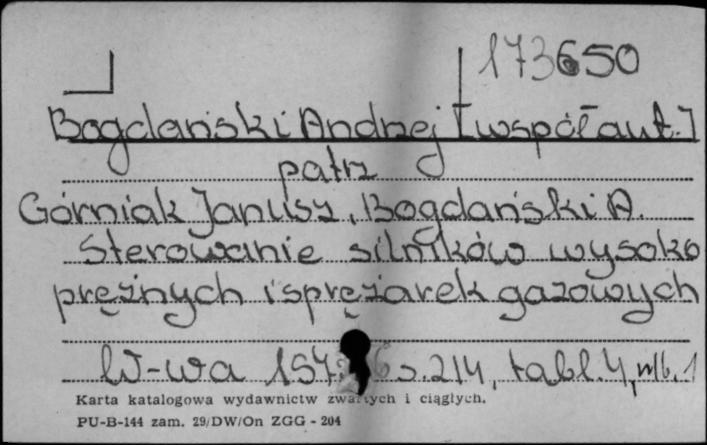 173650
Bogdański Andrzej [współaut.]
patrz
Górniak Janusz, Bogdański A.
Sterowanie silników wysoko
prężnych i sprężarek gazowych
W-wa s. 214, tabl. 4, nlb. 1
Karta katalogowa wydawnictw zwartych i ciągłych.
PU-B-144 zam. 29/DW/On ZGG - 204